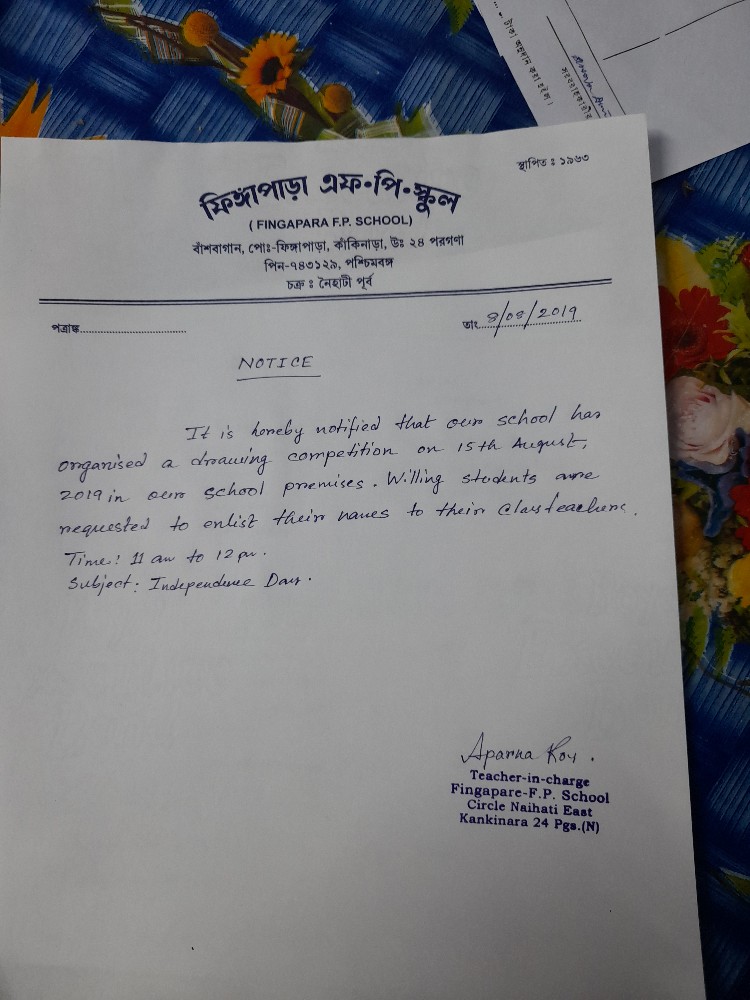 টাকা অনুদান করা হইল।
সরবরাহকারীর
স্থাপিত ঃ ১৯৬৩
ফিঙ্গাপাড়া এফ•পি•স্কুল
( FINGAPARA F.P. SCHOOL)
বাঁশবাগান, পোঃ-ফিঙ্গাপাড়া, কাঁকিনাড়া, উঃ ২৪ পরগণা
পিন-৭৪৩১২৯, পশ্চিমবঙ্গ
চক্র ঃ নৈহাটী পূর্ব
পত্রাঙ্ক..............................
তাং. 8/08/2019
NOTICE
It is hereby notified that our school has
organised a drawing competition on 15th August,
2019 in our school premises. Willing students are
requested to enlist their names to their Class teachers.
Time: 11 am to 12 pm.
Subject: Independence Day.
Aparna Roy.
Teacher-in-charge
Fingapare-F.P. School
Circle Naihati East
Kankinara 24 Pgs.(N)